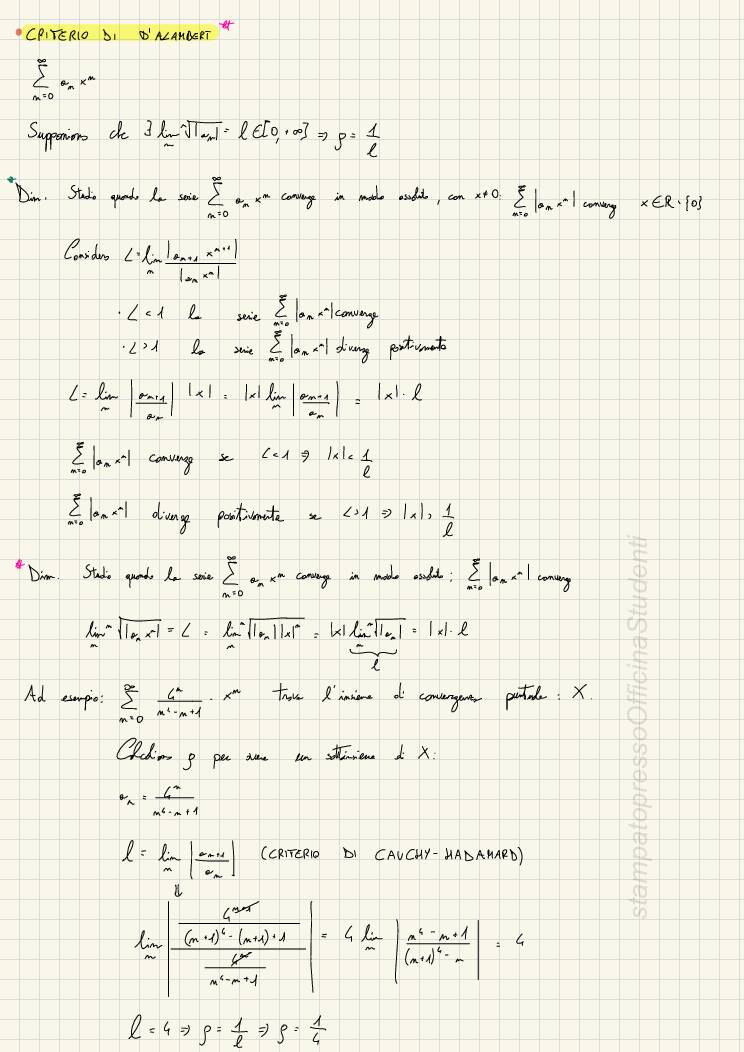 • CRITERIO DI D'ALAMBERT *
∑_{n=0}^{∞} a_n x^n
Supponiamo che ∃ lim_n ⁿ√|a_n| = l ∈ [0, +∞] ⇒ ρ = 1/l
* Dim. Studio quando la serie ∑_{n=0}^{∞} a_n x^n converge in modo assoluto, con x≠0: ∑_{n=0}^{∞} |a_n x^n| converge x∈R∖{0}
Considero L = lim_n |a_{n+1} x^{n+1}| / |a_n x^n|
· L < 1 la serie ∑_{n=0}^{∞} |a_n x^n| converge
· L > 1 la serie ∑_{n=0}^{∞} |a_n x^n| diverge positivamente
L = lim_n |a_{n+1}/a_n| |x| = |x| lim_n |a_{n+1}/a_n| = |x| · l
∑_{n=0}^{∞} |a_n x^n| converge se L < 1 ⇒ |x| < 1/l
∑_{n=0}^{∞} |a_n x^n| diverge positivamente se L > 1 ⇒ |x| > 1/l
* Dim. Studio quando la serie ∑_{n=0}^{∞} a_n x^n converge in modo assoluto: ∑_{n=0}^{∞} |a_n x^n| converge
lim_n ⁿ√|a_n x^n| = L = lim_n ⁿ√|a_n| |x|^n = |x| lim_n ⁿ√|a_n| = |x| · l
l
Ad esempio: ∑_{n=0}^{∞} 4^n/(n^4-n+1) · x^n trova l'insieme di convergenza puntuale: X.
Calcoliamo ρ per avere un sottoinsieme di X:
a_n = 4^n/(n^4-n+1)
l = lim_n |a_{n+1}/a_n| (CRITERIO DI CAUCHY-HADAMARD)
⇓
lim_n |(4^{n+1}/((n+1)^4-(n+1)+1))/(4^n/(n^4-n+1))| = 4 lim_n |(n^4-n+1)/((n+1)^4-n)| = 4
l = 4 ⇒ ρ = 1/l ⇒ ρ = 1/4
stampatopressoOfficinaStudenti